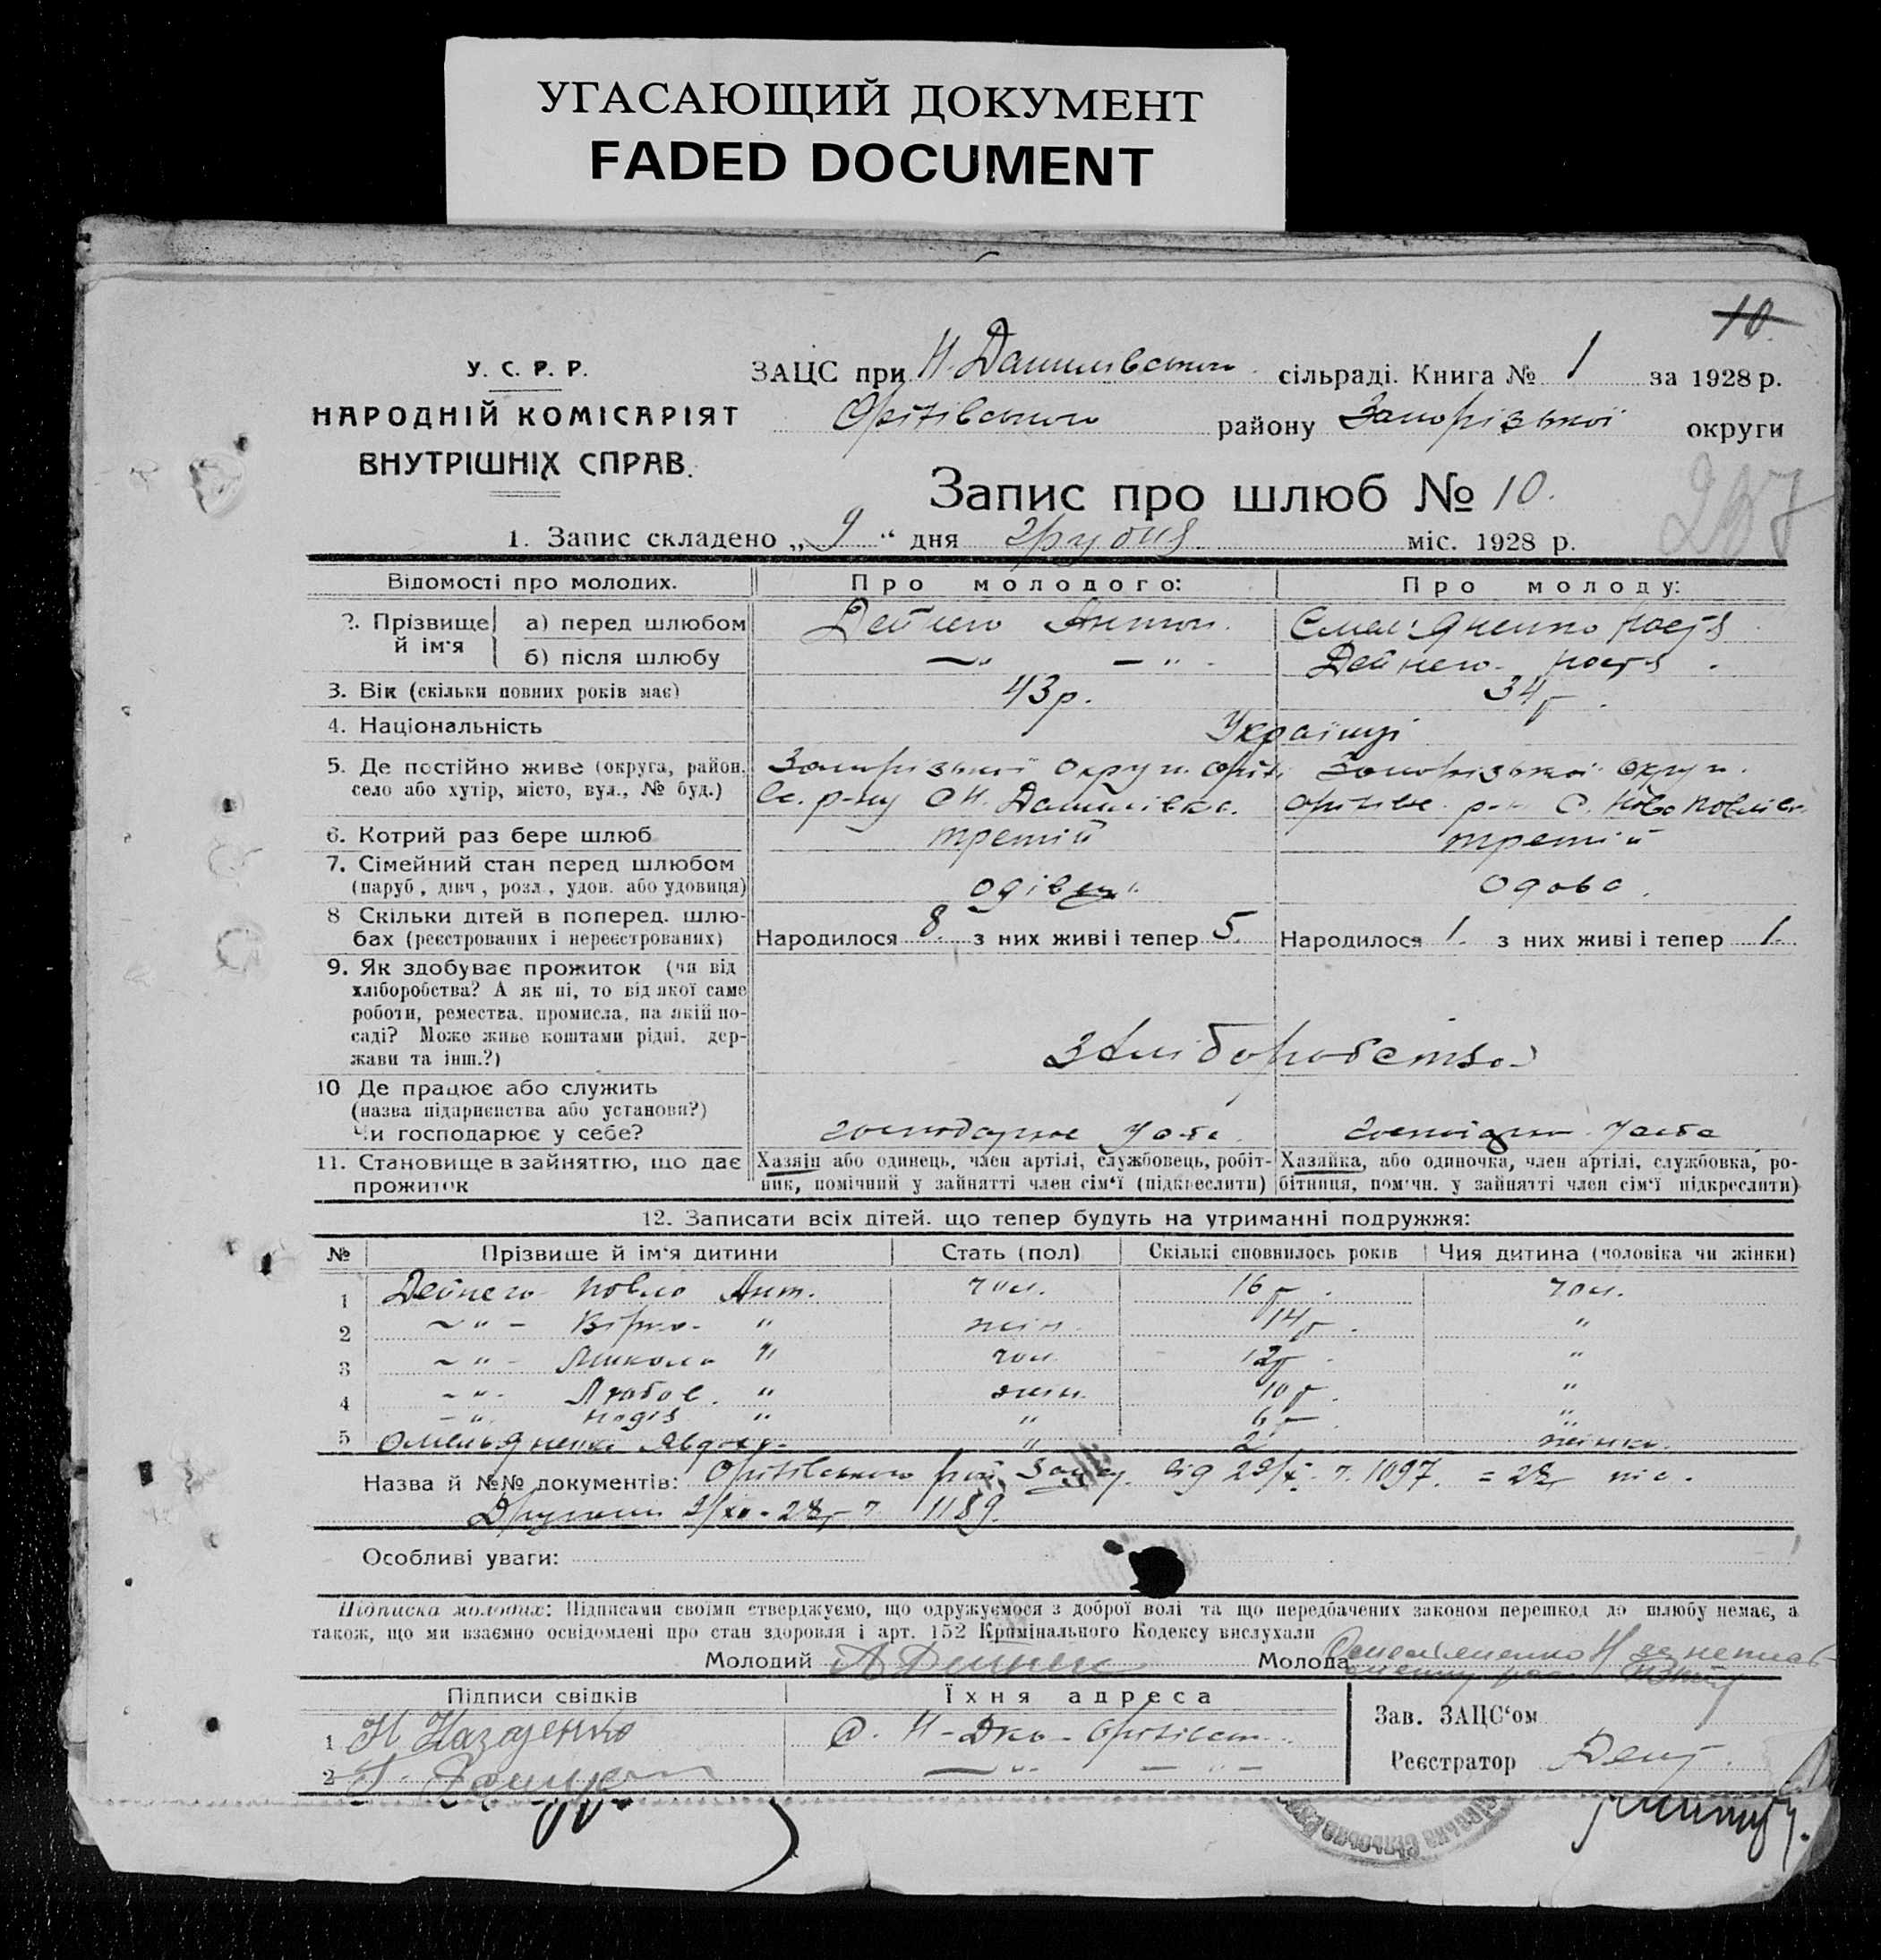 УГАСАЮЩИЙ ДОКУМЕНТ
FADED DOCUMENT
10.
У. С. Р. Р.
НАРОДНІЙ КОМІСАРІЯТ
ВНУТРІШНІХ СПРАВ.
ЗАЦС при Н-Данилівського сільраді. Книга № 1 за 1928 р.
Оріхівського району Запорізької округи
Запис про шлюб № 10.
1. Запис складено „9“ дня грудня міс. 1928 р.
Відомості про молодих. Про молодого: Про молоду:
2. Прізвище й ім'я
а) перед шлюбом Дейнего Антон.
б) після шлюбу —„— —„— Дейнего
3. Вік (скільки повних років має) 43 р. 34 р.
4. Національність Українці
5. Де постійно живе (округа, район, Запорізької округи Оріхі Запорізької округи.
село або хутір, місто, вул., № буд.) вс. р-ну с. Н. Данилівка. Оріхівс. р-н с. Ново Павлів.
6. Котрий раз бере шлюб третій третій
7. Сімейний стан перед шлюбом
(паруб., дівч., розл., удов. або удовиця) Одівец Одова.
8 Скільки дітей в поперед. шлю-
бах (реєстрованих і нереєстрованих) Народилося 8. з них живі і тепер 5. Народилося 1. з них живі і тепер 1.
9. Як здобуває прожиток (чи від
хліборобства? А як ні, то від якої саме
роботи, ремества, промисла, на якій по-
саді? Може живе коштами рідні, дер-
жави та інш.?) З хліборобства
10 Де працює або служить
(назва підприємства або установи?)
Чи господарює у себе? господарює
11. Становище в зайняттю, що дає Хазяїн або одинець, член артілі, службовець, робіт- Хазяйка, або одиночка, член артілі, службовка, ро-
прожиток ник, помічний у зайнятті член сім'ї (підкреслити) бітниця, помічн. у зайнятті член сім'ї підкреслити)
12. Записати всіх дітей. що тепер будуть на утриманні подружжя:
№ Прізвище й ім'я дитини Стать (пол) Скількі сповнилось років Чия дитина (чоловіка чи жінки)
1 Дейнего Павло Ант. чол. 16 р. чол.
2 —„— Вірка „ жін. 14 р. „
3 —„— Микола „ чол. 12 р. „
4 —„— Любов. „ жін. 10 р. „
—„— Надія „ „ 6 р. „
5 Омельяненко Явдоха „ 2 жінки.
Назва й №№ документів: Оріхівського рай від 29/X. ч. 1097. = 28 р.
2/XII - 28 р. ч 1189.
Особливі уваги:
Підписка молодих: Підписами своїми стверджуємо, що одружуємося з доброї волі та що передбачених законом перешкод до шлюбу немає, а
також, що ми взаємно освідомлені про стан здоровля і арт. 152 Крімінального Кодексу вислухали
Молодий А Дейнек Молода Омельяненко Н
Підписи свідків Їхня адреса
Зав. ЗАЦС'ом
1 Н Назаренко с. Н-Дка Оріхівсь.
Реєстратор
2 —„— —„—